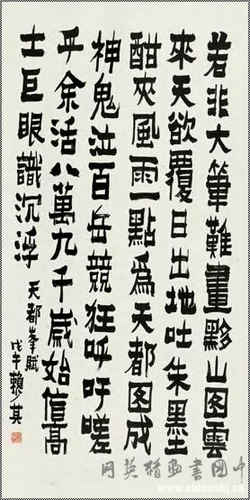 若非大筆難畫黟山图雲
來天欲覆日出地吐朱墨
酣夾風雨一點為天都图成
神鬼泣百岳競狂呼吁嗟
乎余活八萬九千歲始信高
士巨眼識沉浮
天都峯賦
戊午賴其
中国書画拍卖网